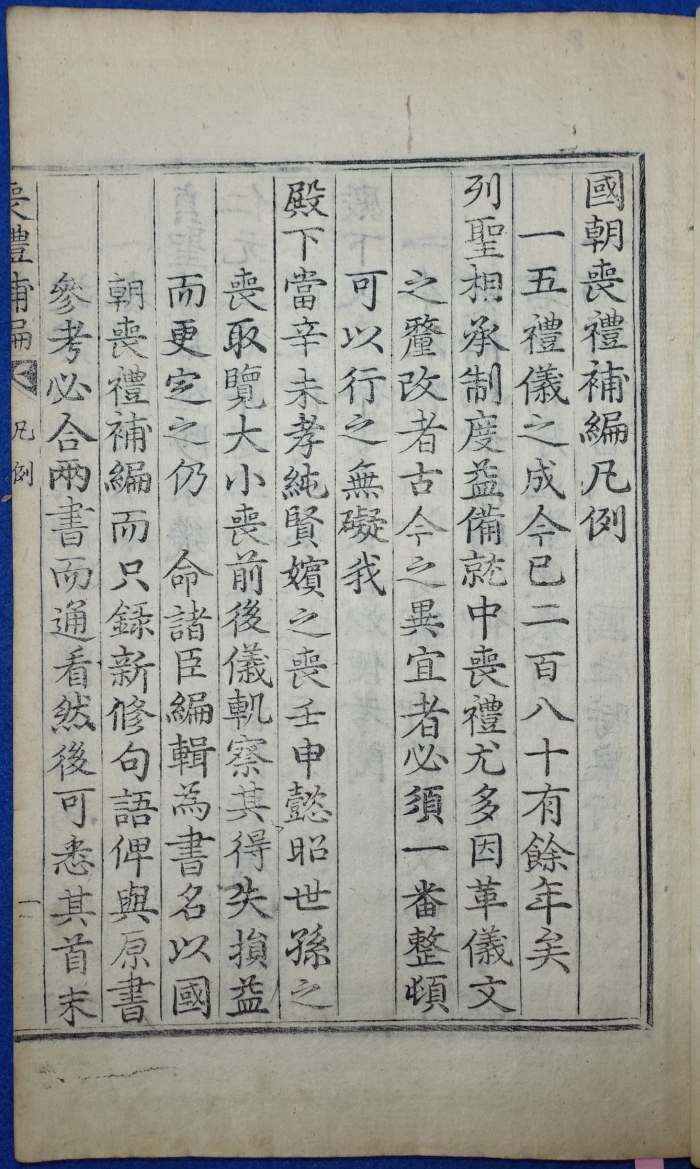 國朝喪禮補編凡例
一五禮儀之成今已二百八十有餘年矣
列聖相承制度益備就中喪禮尤多因革儀文
之釐改者古今之異宜者必須一番整頓
可以行之無礙我
殿下當辛未孝純賢嬪之喪壬申懿昭世孫之
喪取覽大小喪前後儀軌察其得失損益
而更定之仍　命諸臣編輯為書名以國
朝喪禮補編而只錄新修句語俾與原書
參考必合兩書而通看然後可悉其首末
喪禮補編　凡例　一